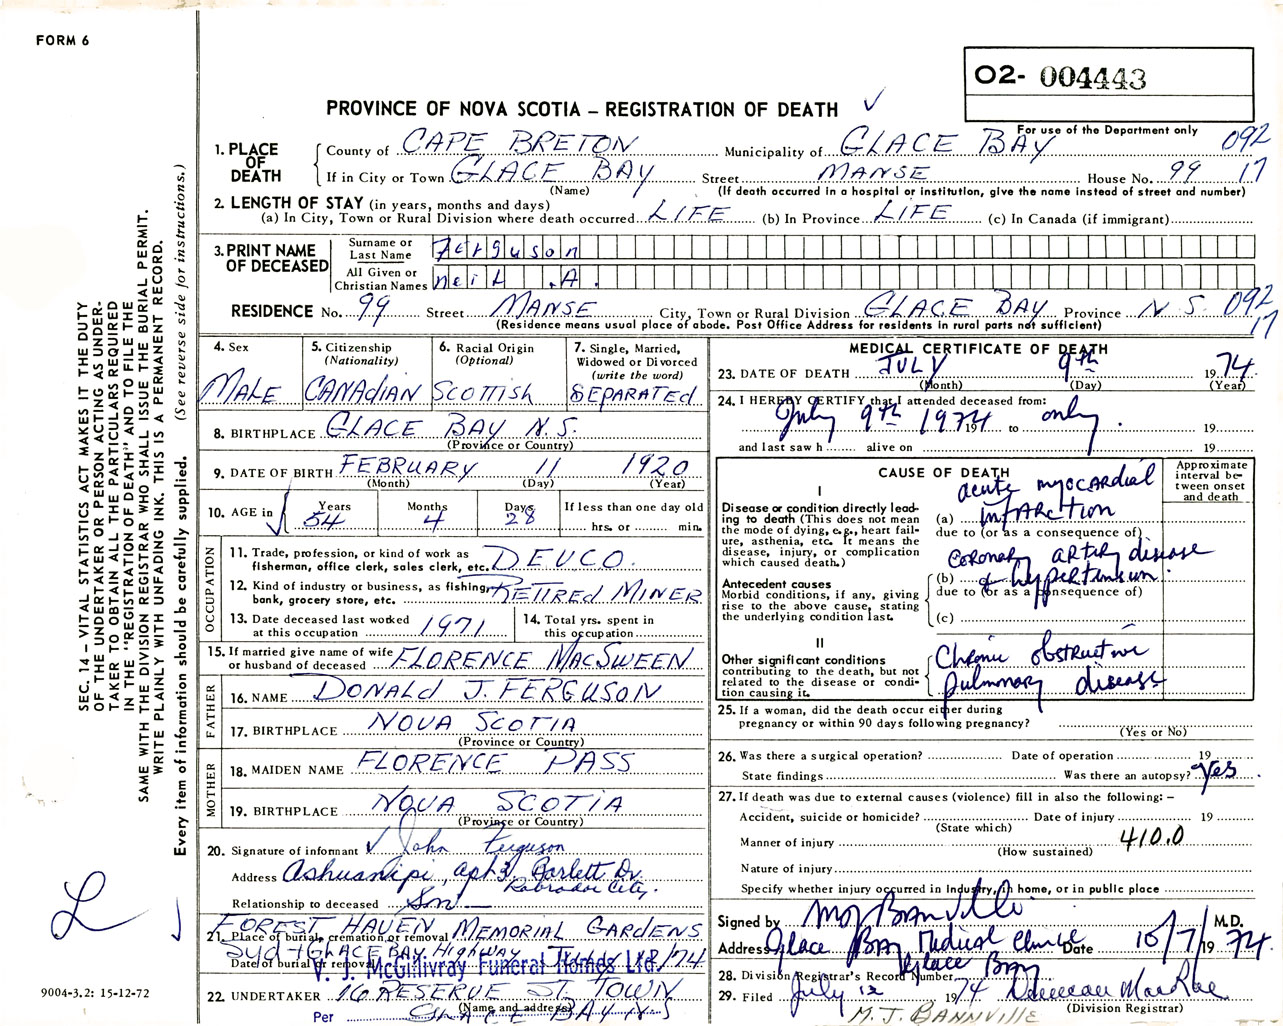 FORM 6
O2- 004443
PROVINCE OF NOVA SCOTIA – REGISTRATION OF DEATH ✓
For use of the Department only
1. PLACE OF DEATH
County of CAPE BRETON Municipality of GLACE BAY 092
If in City or Town GLACE BAY Street MANSE House No. 99 17
(Name) (If death occurred in a hospital or institution, give the name instead of street and number)
2. LENGTH OF STAY (in years, months and days)
(a) In City, Town or Rural Division where death occurred LIFE (b) In Province LIFE (c) In Canada (if immigrant)
3. PRINT NAME OF DECEASED
Surname or Last Name Ferguson
All Given or Christian Names Neil .A.
RESIDENCE No. 99 Street MANSE City, Town or Rural Division GLACE BAY Province N S. 092
(Residence means usual place of abode. Post Office Address for residents in rural parts not sufficient) 17
4. Sex MALE
5. Citizenship (Nationality) CANADIAN
6. Racial Origin (Optional) SCOTTISH
7. Single, Married, Widowed or Divorced (write the word) SEPARATED
8. BIRTHPLACE GLACE BAY N.S.
(Province or Country)
9. DATE OF BIRTH FEBRUARY 11 1920
(Month) (Day) (Year)
10. AGE in Years 54 Months 4 Days 28 If less than one day old hrs. or min.
OCCUPATION
11. Trade, profession, or kind of work as fisherman, office clerk, sales clerk, etc. DEVCO.
12. Kind of industry or business, as fishing, bank, grocery store, etc. RETIRED MINER
13. Date deceased last worked at this occupation 1971
14. Total yrs. spent in this occupation
15. If married give name of wife or husband of deceased FLORENCE MACSWEEN
FATHER
16. NAME DONALD J. FERGUSON
17. BIRTHPLACE NOVA SCOTIA
(Province or Country)
MOTHER
18. MAIDEN NAME FLORENCE PASS
19. BIRTHPLACE NOVA SCOTIA
(Province or Country)
20. Signature of informant ✓ John Ferguson
Address Ashuanipi, apt 3, Barlett Dr.
Labrador City.
Relationship to deceased Son
FOREST HAVEN MEMORIAL GARDENS
21. Place of burial, cremation or removal
Syd + GLACE BAY HIGHWAY
Date of burial or removal /74.
V. J. McGillivray Funeral Homes Ltd.
22. UNDERTAKER 16 RESERVE ST. TOWN
(Name and address)
Per GLACE BAY N S
MEDICAL CERTIFICATE OF DEATH
23. DATE OF DEATH JULY 9th 1974.
(Month) (Day) (Year)
24. I HEREBY CERTIFY that I attended deceased from:
July 9th 1974 19 to only. 19
and last saw h alive on 19
CAUSE OF DEATH
Approximate interval between onset and death
I
Disease or condition directly leading to death (This does not mean the mode of dying, e.g., heart failure, asthenia, etc. It means the disease, injury, or complication which caused death.)
acute myocardial
(a) infarction
due to (or as a consequence of)
Coronary artery disease
(b) & hypertension.
due to (or as a consequence of)
(c)
Antecedent causes
Morbid conditions, if any, giving rise to the above cause, stating the underlying condition last.
II
Other significant conditions contributing to the death, but not related to the disease or condition causing it.
Chronic obstructive
pulmonary disease
25. If a woman, did the death occur either during pregnancy or within 90 days following pregnancy?
(Yes or No)
26. Was there a surgical operation? Date of operation 19
State findings Was there an autopsy? Yes
27. If death was due to external causes (violence) fill in also the following: –
Accident, suicide or homicide? Date of injury 19
(State which)
Manner of injury 410.0
(How sustained)
Nature of injury
Specify whether injury occurred in Industry, in home, or in public place
Signed by MJ Bannville. M.D.
Address Glace Bay Medical Clinic Date 10/7/1974.
Glace Bay
28. Division Registrar's Record Number
29. Filed July 12 1974 Duncan MacRae
(Division Registrar)
M. J. BANNVILLE
SEC. 14 – VITAL STATISTICS ACT MAKES IT THE DUTY
OF THE UNDERTAKER OR PERSON ACTING AS UNDER-
TAKER TO OBTAIN ALL THE PARTICULARS REQUIRED
IN THE "REGISTRATION OF DEATH" AND TO FILE THE
SAME WITH THE DIVISION REGISTRAR WHO SHALL ISSUE THE BURIAL PERMIT.
WRITE PLAINLY WITH UNFADING INK. THIS IS A PERMANENT RECORD.
Every item of information should be carefully supplied. (See reverse side for instructions.)
L
9004-3.2: 15-12-72